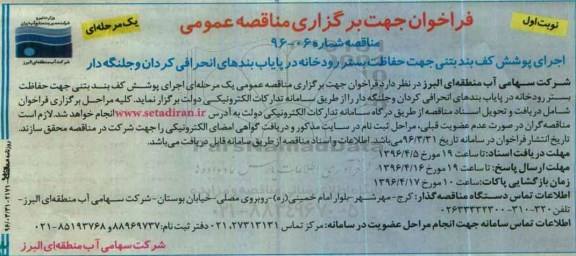 نوبت اول
فراخوان جهت برگزاری مناقصه عمومی
یک مرحله‌ای
مناقصه شماره ۰۶-۹۶
اجرای پوشش کف بند بتنی جهت حفاظت بستر رودخانه در پایاب بندهای انحرافی کردان و جلنگه دار
شرکت سهامی آب منطقه‌ای البرز
شرکت سهامی آب منطقه‌ای البرز در نظر دارد فراخوان جهت برگزاری مناقصه عمومی یک مرحله‌ای اجرای پوشش کف بند بتنی جهت حفاظت
بستر رودخانه در پایاب بندهای انحرافی کردان و جلنگه دار را از طریق سامانه تدارکات الکترونیکی دولت برگزار نماید. کلیه مراحل برگزاری فراخوان
شامل دریافت و تحویل اسناد مناقصه از طریق درگاه سامانه تدارکات الکترونیکی دولت به آدرس www.setadiran.ir انجام خواهد شد. لازم است
مناقصه گران در صورت عدم عضویت قبلی، مراحل ثبت نام در سایت مذکور و دریافت گواهی امضای الکترونیکی را جهت شرکت در مناقصه محقق سازند.
تاریخ انتشار فراخوان در سامانه تاریخ ۹۶/۳/۳۱ می‌باشد. اطلاعات و اسناد مناقصه از طریق سامانه قابل دریافت می‌باشد.
مهلت دریافت اسناد: تا ساعت ۱۹ مورخ ۱۳۹۶/۴/۵
مهلت ارسال پاسخ: تا ساعت ۱۹ مورخ ۱۳۹۶/۴/۱۶
زمان بازگشایی پاکات: ساعت ۱۰ مورخ ۱۳۹۶/۴/۱۷
اطلاعات تماس دستگاه مناقصه گذار: کرج-مهرشهر-بلوار امام خمینی(ره)-روبروی مصلی-خیابان بوستان-شرکت سهامی آب منطقه‌ای البرز-
تلفن ۳۲۰-۳۱۰-۰۲۶۳۳۳۲۳۰۰
اطلاعات تماس سامانه جهت انجام مراحل عضویت در سامانه: مرکز تماس ۰۲۱،۲۷۳۱۳۱۳۱ دفتر ثبت نام: ۸۸۹۶۹۷۳۷ و ۰۲۱-۸۵۱۹۳۷۶۸
شرکت سهامی آب منطقه‌ای البرز